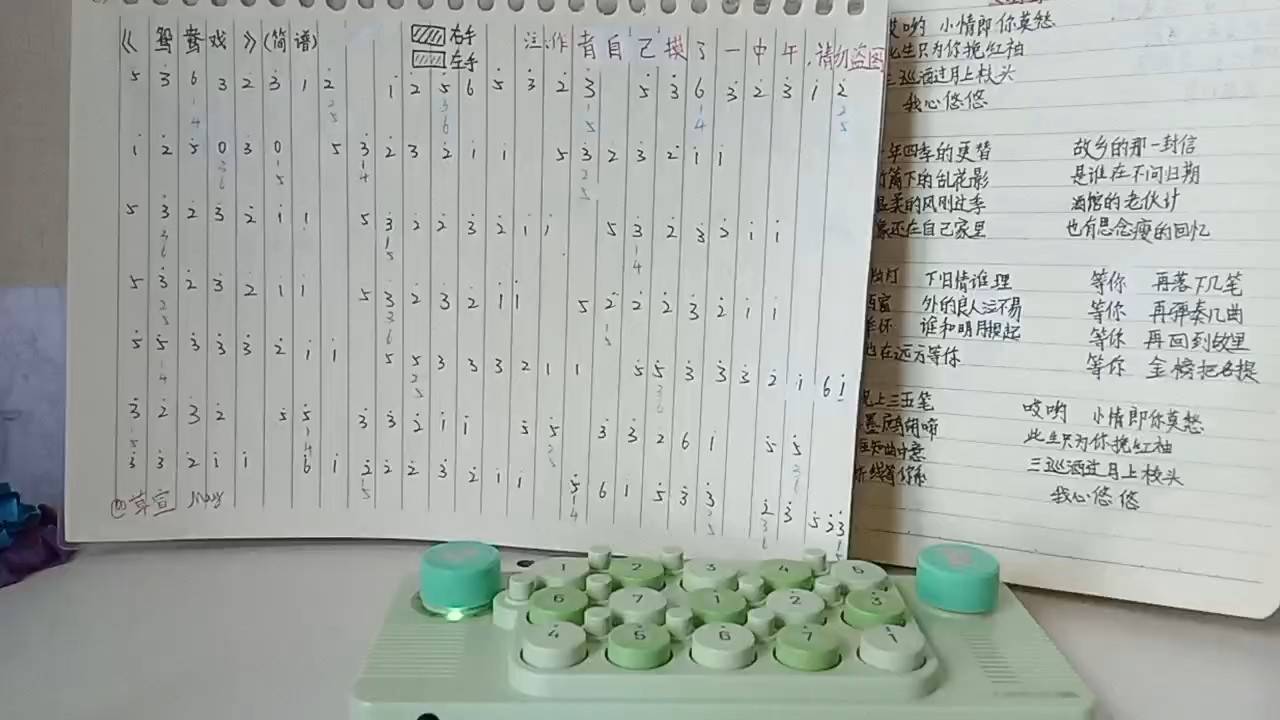 《鸳鸯戏》(简谱)
右手
左手
注:作者自己摸了一中午,请勿盗图
5 3 6 3 2 3 1 2 1 2 5 6 5 3 2 3 5 3 6 3 2 3 1 2
1 4 2 5 3 6 1 5 1 4 2 5
1 2 5 0 3 0 5 3 2 3 2 1 1 5 3 2 3 2 1 1
3 6 1 5 1 4 2 5
5 3 2 3 2 1 1 5 3 2 2 3 2 1 1 5 3 2 3 2 1 1
3 6 1 5 1 4
5 3 2 3 2 1 1 5 3 2 3 2 1 1 5 2 2 2 3 2 1 1
2 5 3 6 1 5
5 5 3 3 3 2 1 1 5 5 3 3 3 2 1 1 5 5 3 3 3 2 1 6 1
1 4 2 5 3 6
3 2 3 2 5 5 3 3 2 1 1 5 5 3 3 2 6 1 5 5
1 5 1 4 2 5 3 6
3 3 2 1 1 6 1 2 2 2 3 2 1 1 5 6 1 5 3 3 2 3 5 2 3
1 5 1 4 2 5 3 6 1 5
@草宣 May
哎哟 小情郎你莫愁
此生只为你挽红袖
三巡酒过月上枝头
我心悠悠
年四季的更替 故乡的那一封信
下的乱花影 是谁在不问归期
温柔的风刚过季 酒馆的老伙计
像还在自己家里 也有思念瘦的回忆
灯 下旧情谁理 等你 再落下几笔
窗 外的良人运不易 等你 再弹奏几曲
怀 谁和明月提起 等你 再回到故里
也在远方等你 等你 金榜把名提
上三五笔 哎哟 小情郎你莫愁
此生只为你挽红袖
三巡酒过月上枝头
线等你 我心悠悠
1 2 3 4 5
6 7 1 2 3
4 5 6 7 1